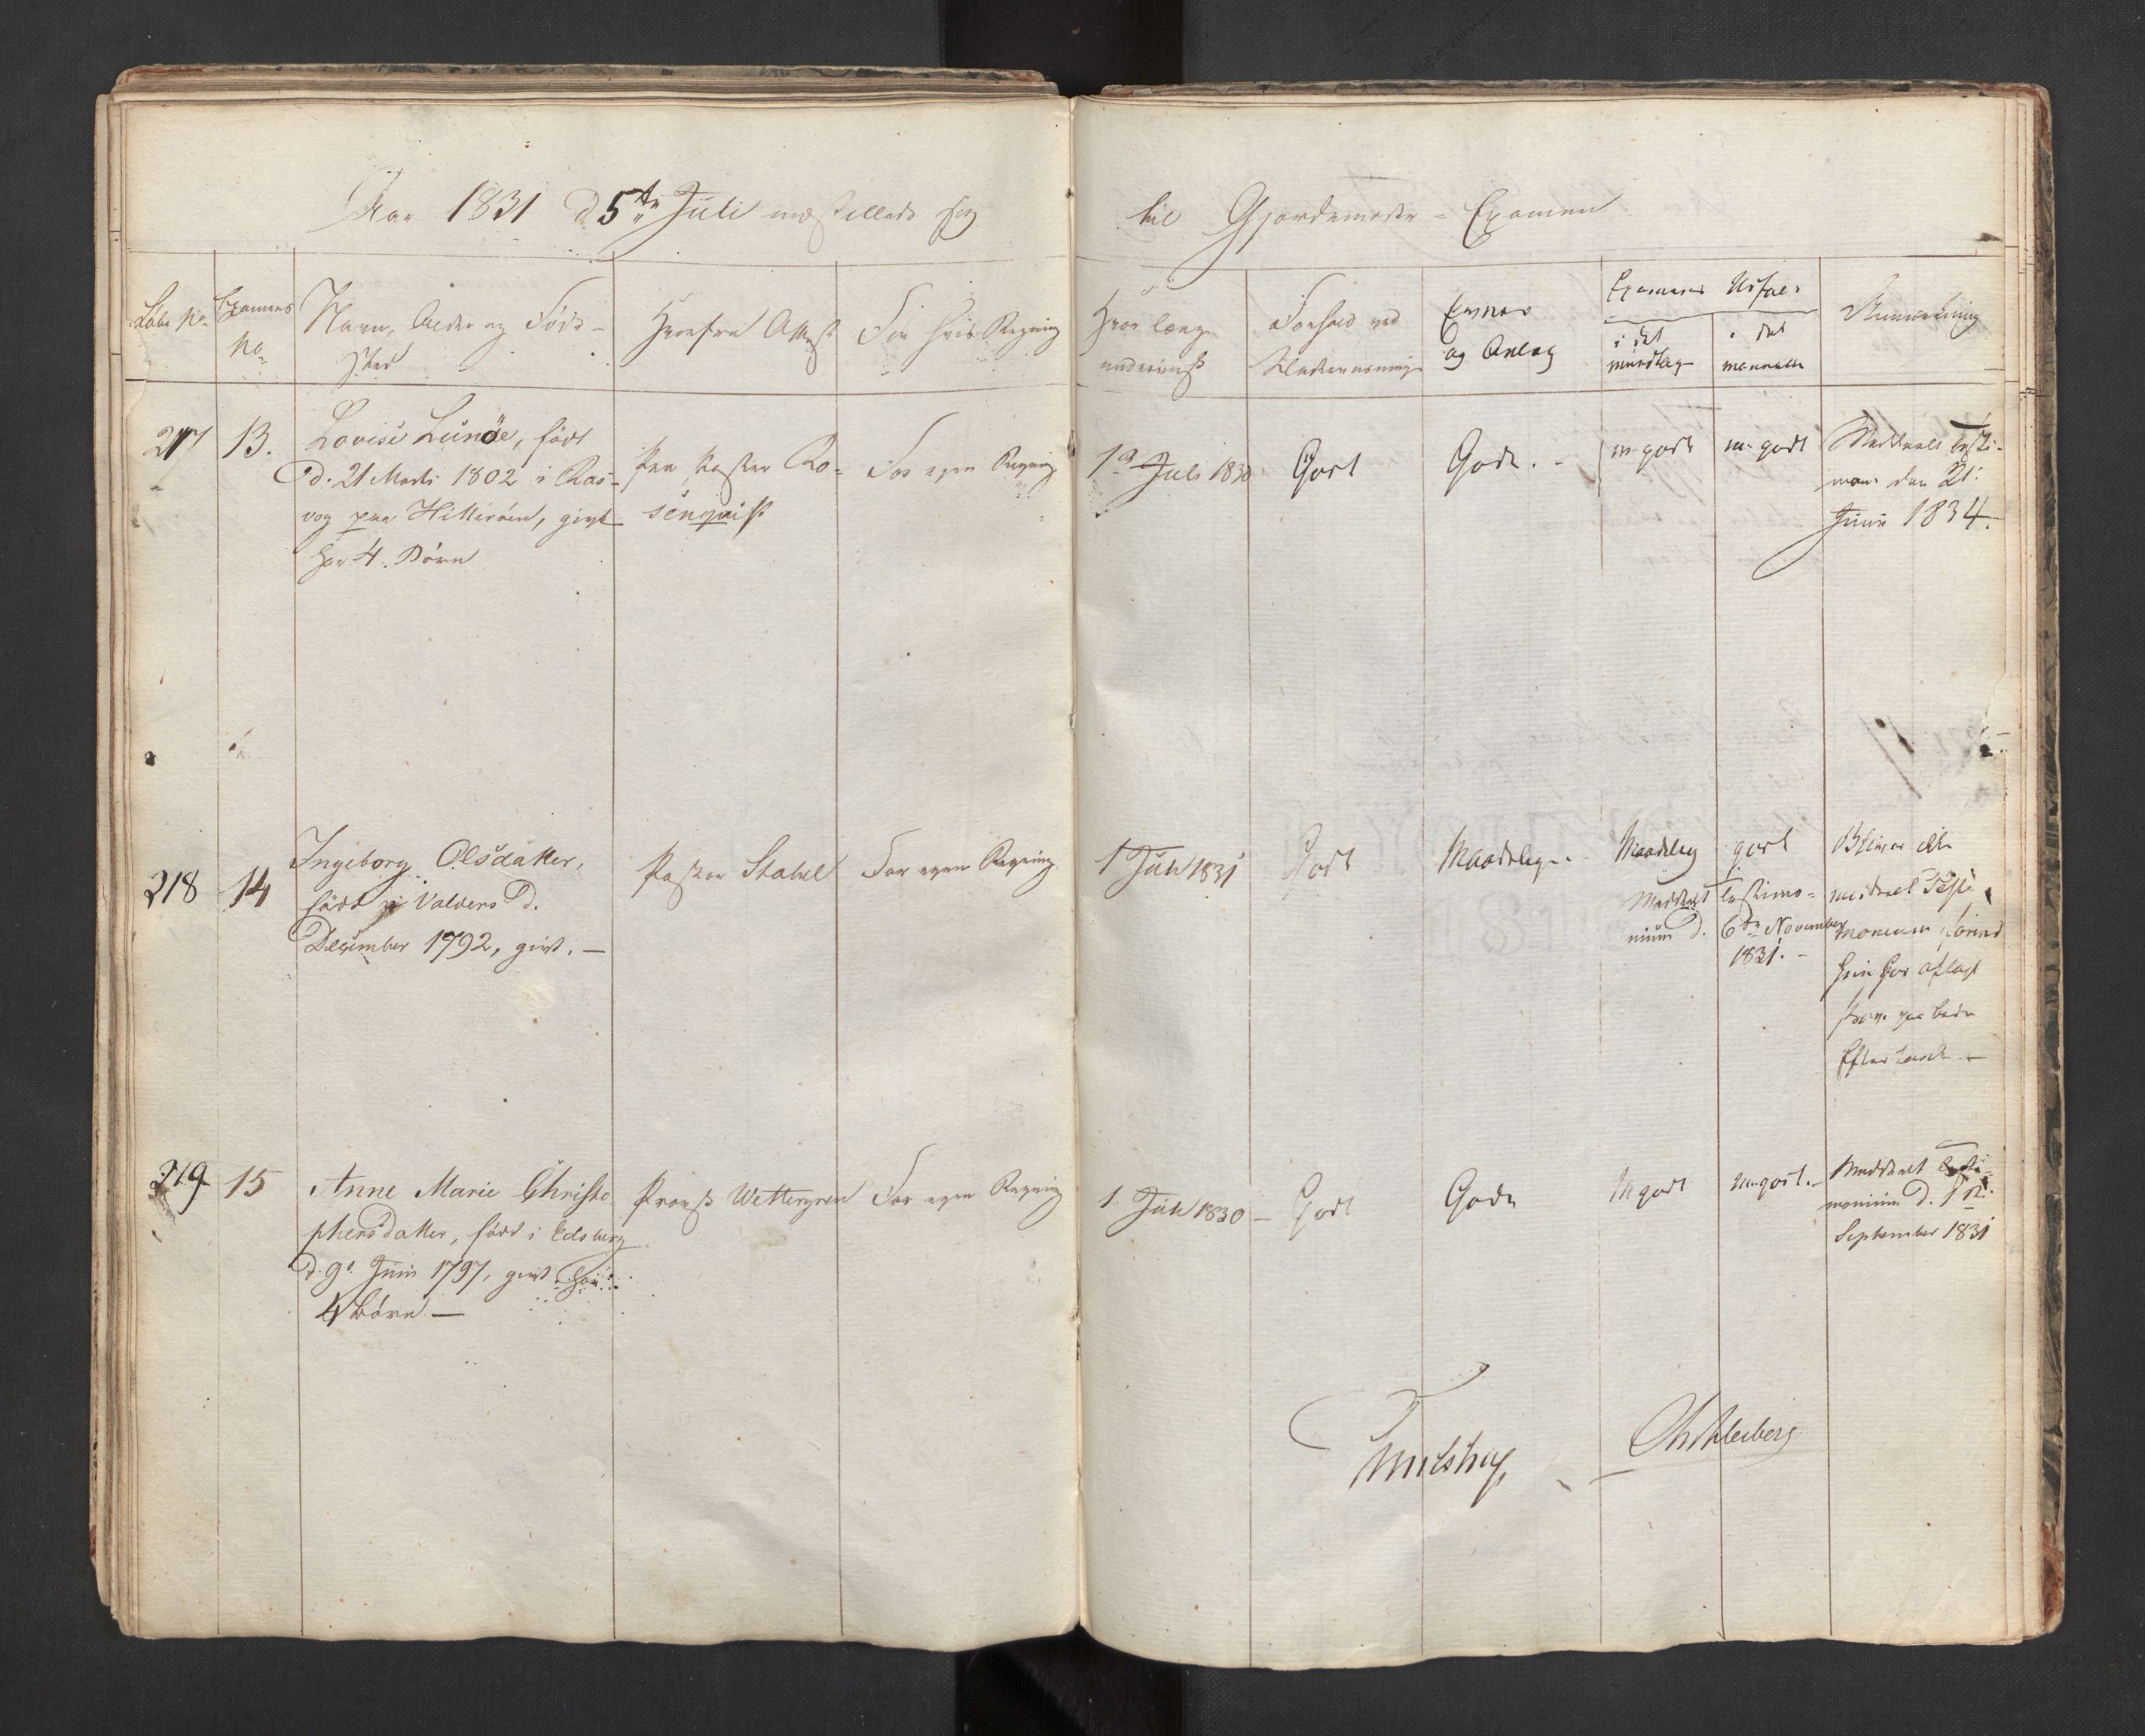 Aar 1831 d 5te Juli indstillede sig
til Gjordemoder-Examen
Løbe No.
Examens No.
Navn, Alder og Føde-
sted
Hvorfra Attest
For hvis Regning
Hvor længe
underviist
Forhold ved
Underviisning
Evner
og Anlæg
Examens Udfald
i det
mundtlig
i det
manuelle
Anmærkning
217
13.
Lovise Lunde, født
d. 21 Marts 1802 i Ras-
vog paa Hitterøen, givt
har 4 Børn
Fra Pastor Ro-
senqvist
For egen Regning
1a Juli 1830
Godt
Gode. -
m. godt
m. godt
Meddeelt testi-
mon. den 21.
Juni 1834.
218
14
Ingeborg Olsdatter,
født i Valders d.
December 1792, givt. -
Pastor Stabel
For egen Regning
1 Juli 1831
Godt
Maadelige.
Maadelig
godt
Meddeelt testimo-
nium d. 6te November
1831. -
Bliver ikke
meddeelt Testi-
monium førend
hun har aflagt
Prøve paa bedre
219
15
Anne Marie Christo
phersdatter, født i Edsberg
d. 9. Juni 1797, givt har
4 Børn -
Provst Wettergren
For egen Regning
1. Juli 1830 -
Godt
Gode
M godt
m. godt. -
Meddeelt testi-
monium d. 1ste
September 1831
Thulstrup